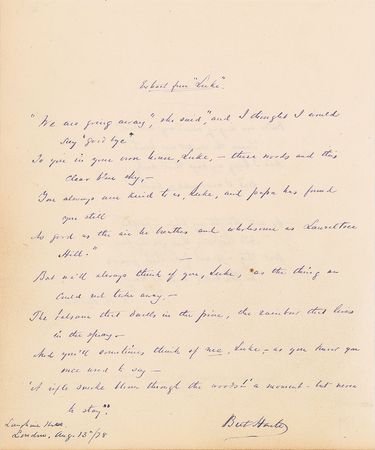 Extract from "Luke".
"We are going away", she said, "and I thought I would
say 'good bye'
To you in your own house, Luke, – these woods and this
clear blue sky, –
You always were kind to us, Luke, and papa has found
you still
As good as the air he breathes and wholesome as Laureltree
Hill. "
But we'll always think of you, Luke, as the thing we
could not take away, –
The balsam that dwells in the pine, the rainbow that lives
in the spray –
And you'll sometimes think of me, Luke, – as you know you
once used to say –
'A rifle smoke blown through the woods!' a moment – but never
to stay".
Langham Hotel
London, Aug. 13th/78
Bret Harte